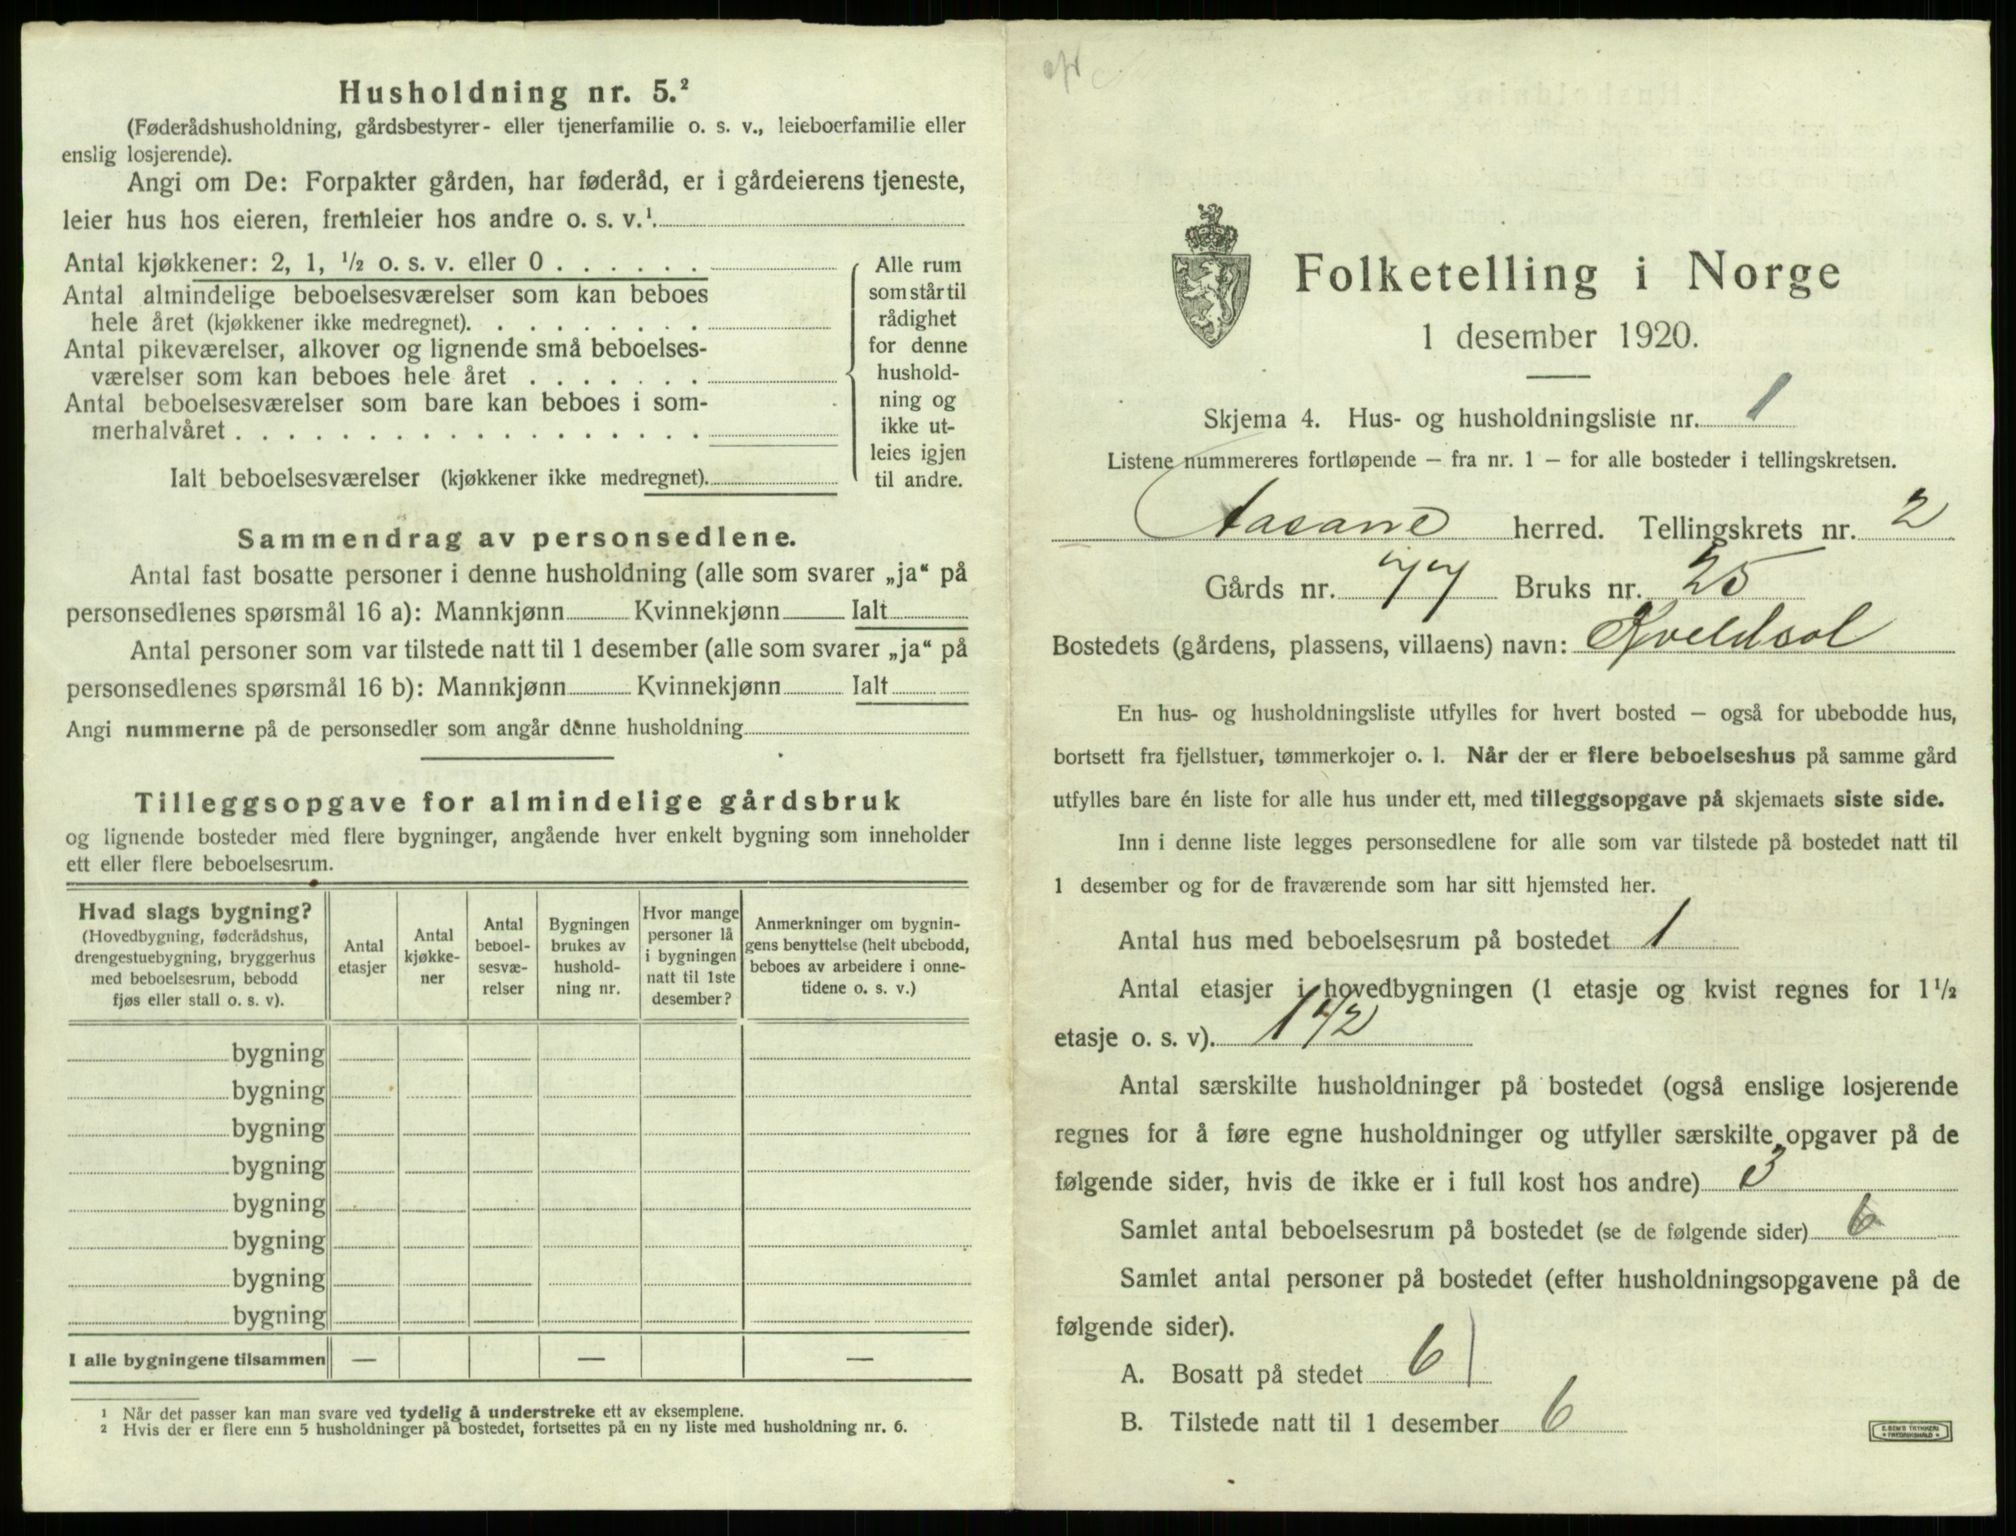 Husholdning nr. 5.²
(Føderådshusholdning, gårdsbestyrer- eller tjenerfamilie o. s. v., leieboerfamilie eller
enslig losjerende).
Angi om De: Forpakter gården, har føderåd, er i gårdeierens tjeneste,
leier hus hos eieren, fremleier hos andre o. s. v.¹
Antal kjøkkener: 2, 1, ½ o. s. v. eller 0
Antal almindelige beboelsesværelser som kan beboes
hele året (kjøkkener ikke medregnet)
Antal pikeværelser, alkover og lignende små beboelses-
værelser som kan beboes hele året
Antal beboelsesværelser som bare kan beboes i som-
merhalvåret
Ialt beboelsesværelser (kjøkkener ikke medregnet)
Alle rum
som står til
rådighet
for denne
hushold-
ning og
ikke ut-
leies igjen
til andre.
Sammendrag av personsedlene.
Antal fast bosatte personer i denne husholdning (alle som svarer „ja“ på
personsedlenes spørsmål 16 a): Mannkjønn Kvinnekjønn Ialt
Antal personer som var tilstede natt til 1 desember (alle som svarer „ja“ på
personsedlenes spørsmål 16 b): Mannkjønn Kvinnekjønn Ialt
Angi nummerne på de personsedler som angår denne husholdning
Tilleggsopgave for almindelige gårdsbruk
og lignende bosteder med flere bygninger, angående hver enkelt bygning som inneholder
ett eller flere beboelsesrum.
Hvad slags bygning?
(Hovedbygning, føderådshus,
drengestuebygning, bryggerhus
med beboelsesrum, bebodd
fjøs eller stall o. s. v).
Antal
etasjer
Antal
kjøkke-
ner
Antal
beboel-
sesvæ-
relser
Bygningen
brukes av
hushold-
ning nr.
Hvor mange
personer lå
i bygningen
natt til 1ste
desember?
Anmerkninger om bygnin-
gens benyttelse (helt ubebodd,
beboes av arbeidere i onne-
tidene o. s. v.)
bygning
bygning
bygning
bygning
bygning
bygning
bygning
bygning
I alle bygningene tilsammen — — —
¹ Når det passer kan man svare ved tydelig å understreke ett av eksemplene.
² Hvis der er flere enn 5 husholdninger på bostedet, fortsettes på en ny liste med husholdning nr. 6.
Folketelling i Norge
1 desember 1920.
Skjema 4. Hus- og husholdningsliste nr. 1
Listene nummereres fortløpende – fra nr. 1 – for alle bosteder i tellingskretsen.
Aasane herred. Tellingskrets nr. 2
Gårds nr. 77 Bruks nr. 25
Bostedets (gårdens, plassens, villaens) navn: Kveldsol
En hus- og husholdningsliste utfylles for hvert bosted – også for ubebodde hus,
bortsett fra fjellstuer, tømmerkojer o. l. Når der er flere beboelseshus på samme gård
utfylles bare én liste for alle hus under ett, med tilleggsopgave på skjemaets siste side.
Inn i denne liste legges personsedlene for alle som var tilstede på bostedet natt til
1 desember og for de fraværende som har sitt hjemsted her.
Antal hus med beboelsesrum på bostedet 1
Antal etasjer i hovedbygningen (1 etasje og kvist regnes for 1½
etasje o. s. v). 1½
Antal særskilte husholdninger på bostedet (også enslige losjerende
regnes for å føre egne husholdninger og utfyller særskilte opgaver på de
følgende sider, hvis de ikke er i full kost hos andre) 3
Samlet antal beboelsesrum på bostedet (se de følgende sider) 6
Samlet antal personer på bostedet (efter husholdningsopgavene på de
følgende sider).
A. Bosatt på stedet 6
B. Tilstede natt til 1 desember 6